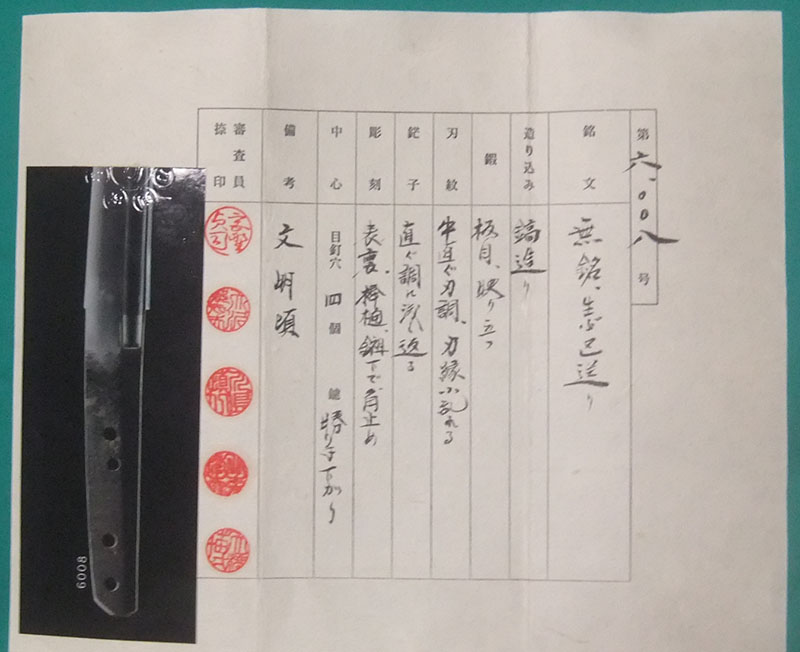 第 六、〇〇八 号
銘文 無銘、生ぶ 区送り
造り込み 鎬造り
鍛 板目、映り立つ
刃紋 中直ぐ刃調、刃縁小乱れる
鋩子 直ぐ調に 返る
彫刻 表裏、棒樋、鎺下で角止め
中心 目釘穴 四個 鑢 勝手下がり
備考 文明頃
審査員 捺印
6008